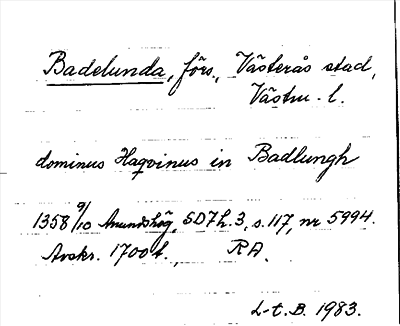 Badelunda, förs., Västerås stad,
Västm. l.
dominus Haqvinus in Badlungh
1358 9/10 Anundshög, SD7h.3, s. 117, nr 5994.
Avskr. 1700t., RA.
L-t. B. 1983.